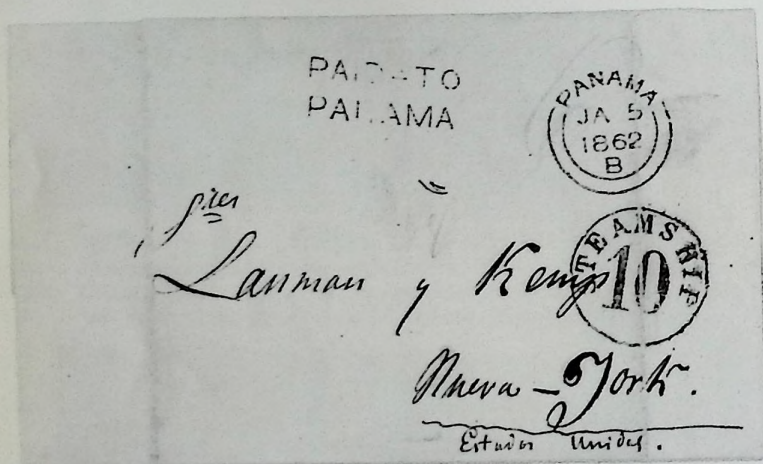 PAID TO
PANAMA
PANAMA
JA 5
1862
B
Sres
Lanman y Kemp
STEAMSHIP
10
Nueva-York.
Estados Unidos.